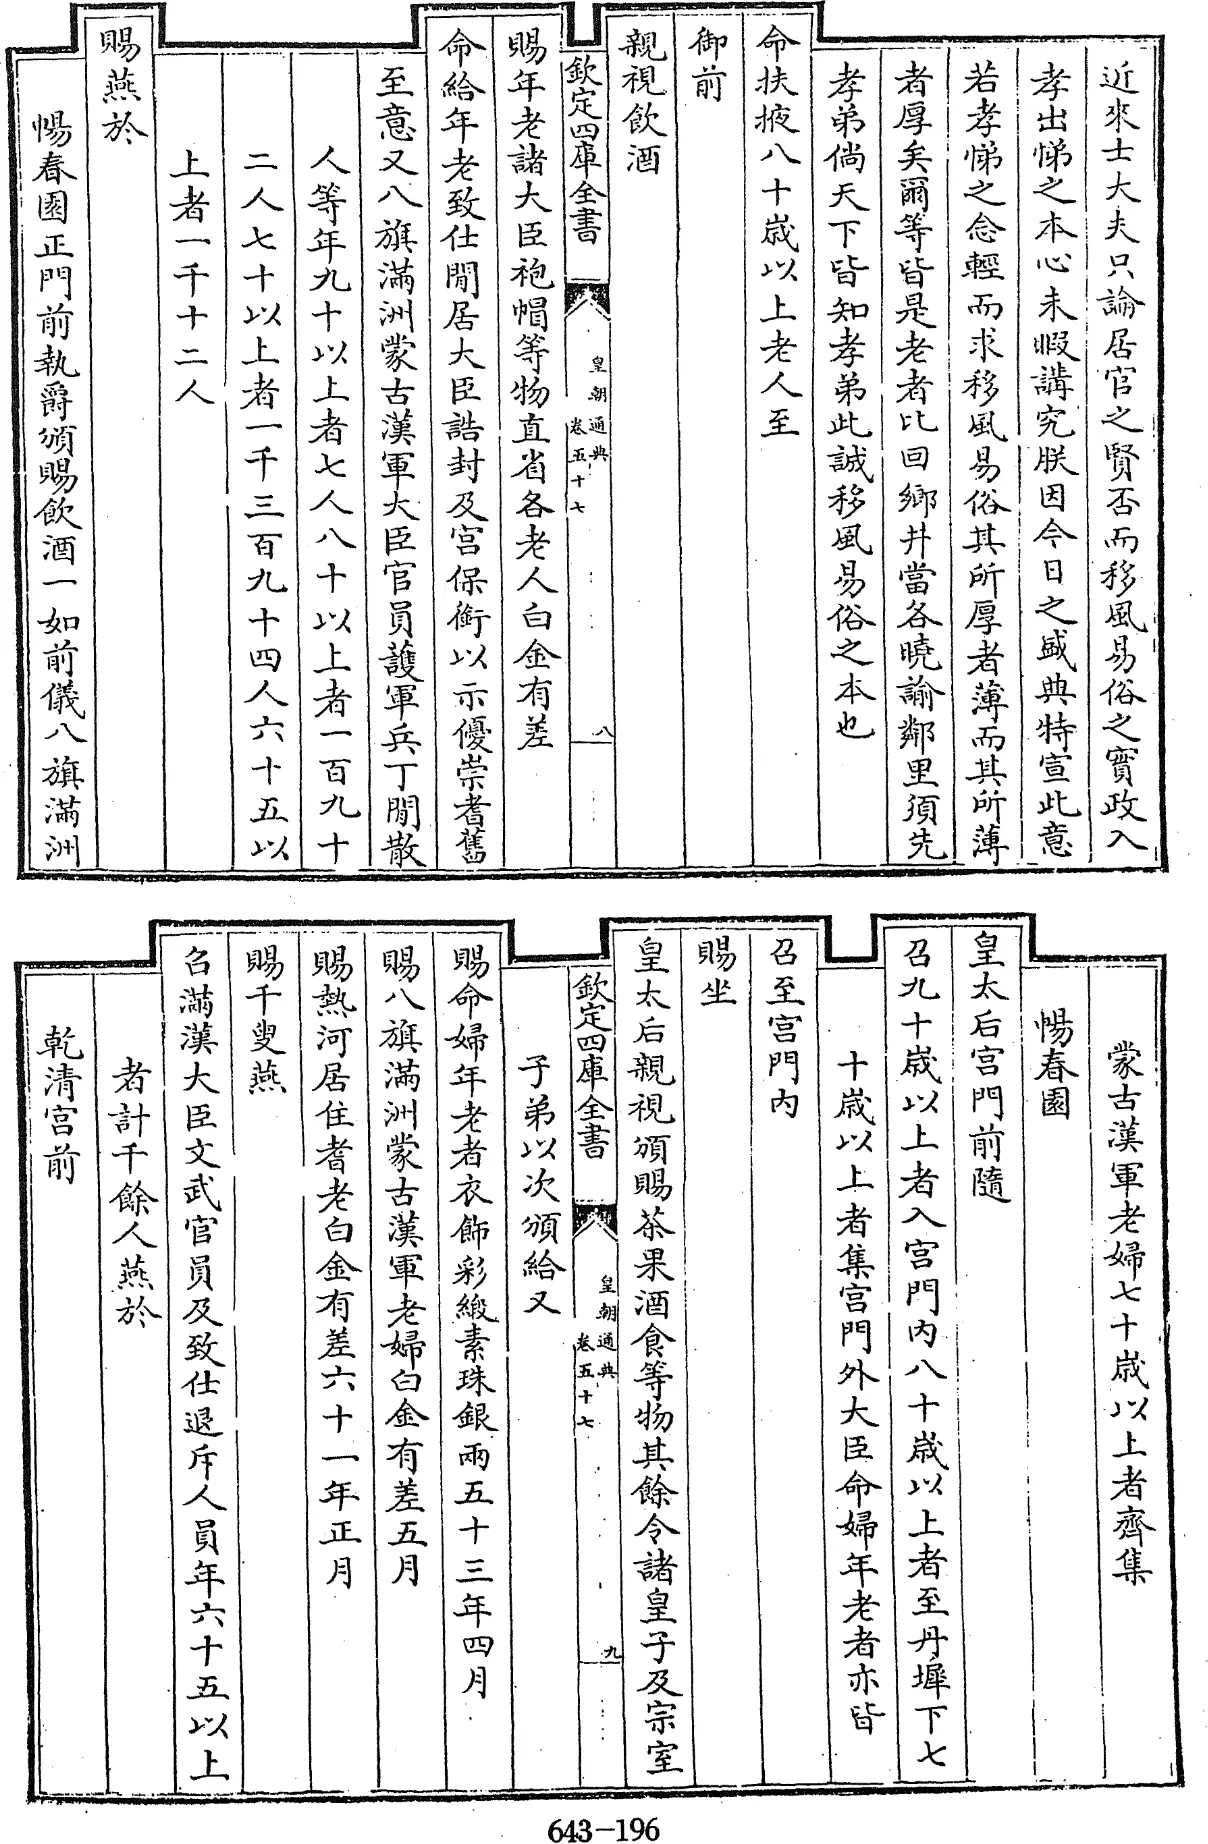 近來士大夫只論居官之賢否而移風易俗之實政入
孝出悌之本心未暇講究朕因今日之盛典特宣此意
若孝悌之念輕而求移風易俗其所厚者薄而其所薄
者厚矣爾等皆是老者比回鄉井當各曉諭鄰里須先
孝弟倘天下皆知孝弟此誠移風易俗之本也
命扶掖八十歳以上老人至
御前
親視飲酒
欽定四庫全書
皇朝通典
卷五十七
八
賜年老諸大臣袍帽等物直省各老人白金有差
命給年老致仕閒居大臣誥封及宫保銜以示優崇耆舊
至意又八旗滿洲蒙古漢軍大臣官員護軍兵丁閒散
人等年九十以上者七人八十以上者一百九十
二人七十以上者一千三百九十四人六十五以
上者一千十二人
賜燕於
暢春園正門前執爵頒賜飲酒一如前儀八旗滿洲
蒙古漢軍老婦七十歳以上者齊集
暢春園
皇太后宫門前隨
召九十歳以上者入宫門内八十歳以上者至丹墀下七
十歳以上者集宫門外大臣命婦年老者亦皆
召至宫門内
賜坐
皇太后親視頒賜茶果酒食等物其餘令諸皇子及宗室
欽定四庫全書
皇朝通典
卷五十七
九
子弟以次頒給又
賜命婦年老者衣飾彩緞素珠銀兩五十三年四月
賜八旗滿洲蒙古漢軍老婦白金有差五月
賜熱河居住耆老白金有差六十一年正月
賜千叟燕
召滿漢大臣文武官員及致仕退斥人員年六十五以上
者計千餘人燕於
乾清宫前
643-196